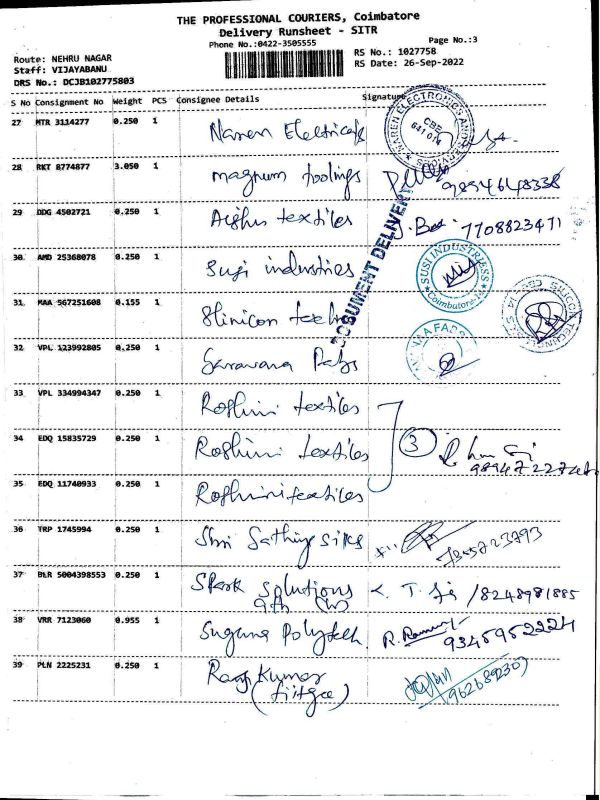 THE PROFESSIONAL COURIERS, Coimbatore
Delivery Runsheet - SITR
Phone No.:0422-3505555
Page No.:3
Route: NEHRU NAGAR
Staff: VIJAYABANU
DRS No.: DCJB102775803
RS No.: 1027758
RS Date: 26-Sep-2022
S No Consignment No Weight PCS Consignee Details Signature
27 MTR 3114277 0.250 1 Naren Electricals
NAREN ELECTRONICS AND CBE 641 014
28 RKT 8774877 3.050 1 magnum toolings 9894648338
29 DDG 4502721 0.250 1 textiles 7708823471
DOCUMENT DELIVER
30 AMD 25368078 0.250 1 Susi industries
SUSI INDUSTRIESS Coimbatore-14
31 MAA 567251608 0.155 1
32 VPL 123992805 0.250 1 Saravana Fabs
33 VPL 334994347 0.250 1 Roshini textiles
34 EDQ 15835729 0.250 1 Roshini textiles 3
35 EDQ 11740933 0.250 1 Roshini textiles
36 TRP 1745994 0.250 1 Shri Sathiya silks
37 BLR 5004398553 0.250 1 Spark Solutions /8248981885
38 VRR 7123060 0.955 1 Suguna Polytech R.
39 PLN 2225231 0.250 1 Kumar